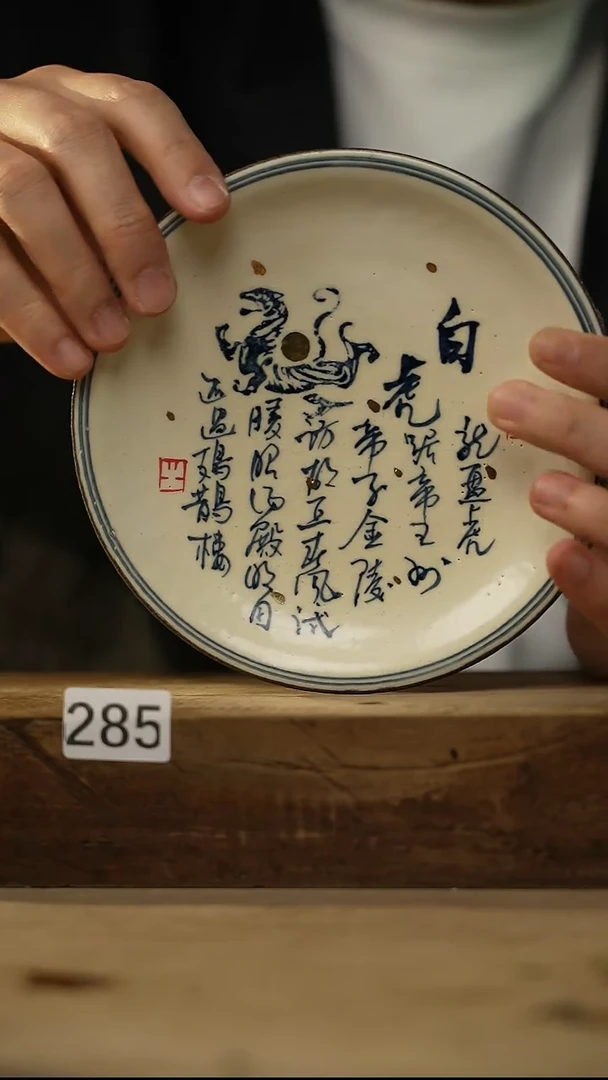 白虎
龍盤虎
踞帝王州
帝子金陵
訪古丘春風試
暖昭陽殿明月
還過鳷鵲樓
285